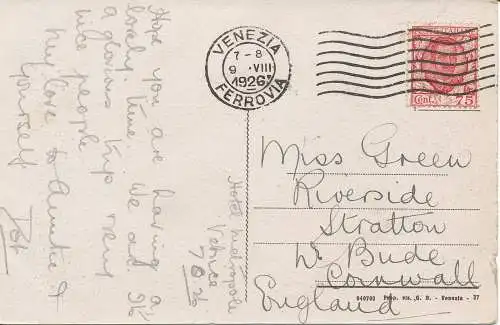 Hope you are having a
lovely time. We are
a glorious trip very
nice people
My love to Auntie &
yourself
VENEZIA
7 - 8
9 · VIII
1926
FERROVIA
Cent. 75
Hotel Metropole
Venice
7 8 26
Miss Green
Riverside
Stratton
Nr Bude
Cornwall
England
Prop. ris. G. B. - Venezia - 27